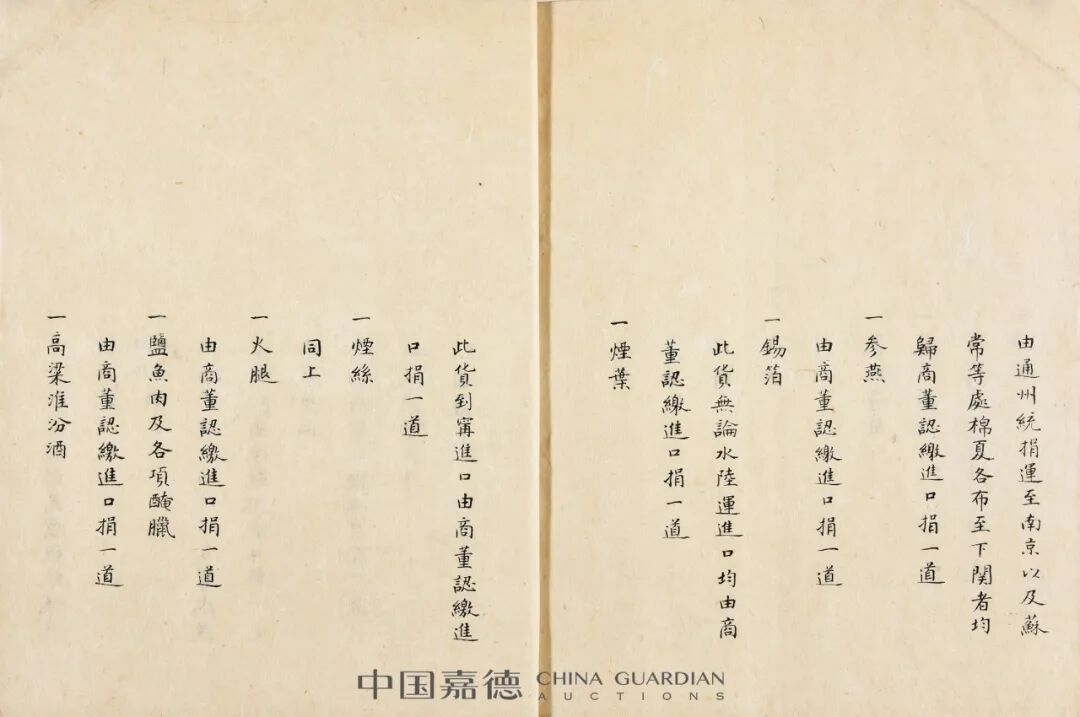 由通州統捐運至南京以及蘇
常等處棉夏各布至下関者均
歸商董認繳進口捐一道
一參燕
由商董認繳進口捐一道
一錫箔
此貨無論水陸運進口均由商
董認繳進口捐一道
一煙葉
此貨到甯進口由商董認繳進
口捐一道
一煙絲
同上
一火腿
由商董認繳進口捐一道
一鹽魚肉及各項醃臘
由商董認繳進口捐一道
一高粱淮汾酒
中国嘉德 CHINA GUARDIAN
AUCTIONS